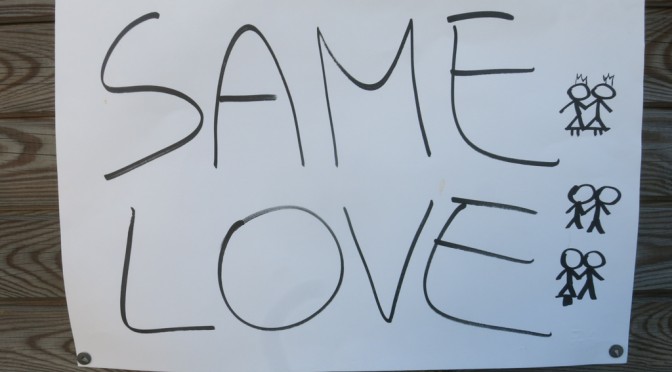 SAME
LOVE